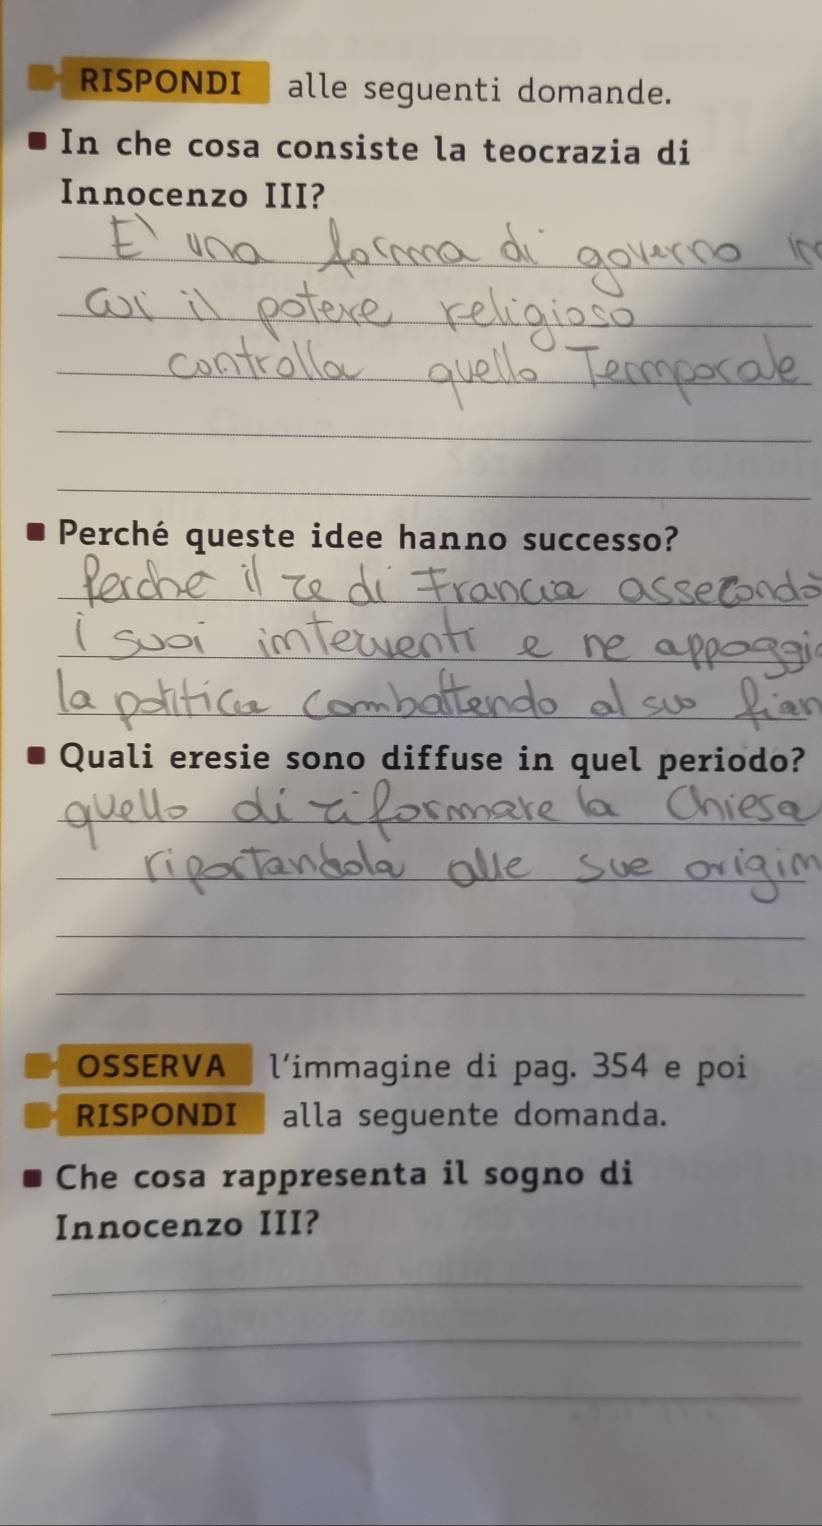 RISPONDI alle seguenti domande.
In che cosa consiste la teocrazia di
Innocenzo III?
E' una forma di governo in
cui il potere religioso
controlla quello Temporale
Perché queste idee hanno successo?
Perche il re di Francia assecondò
i suoi interventi e ne appoggiò
la politica combattendo al suo fian
Quali eresie sono diffuse in quel periodo?
quello di riformare la Chiesa
riportandola alle sue origin
OSSERVA l'immagine di pag. 354 e poi
RISPONDI alla seguente domanda.
Che cosa rappresenta il sogno di
Innocenzo III?